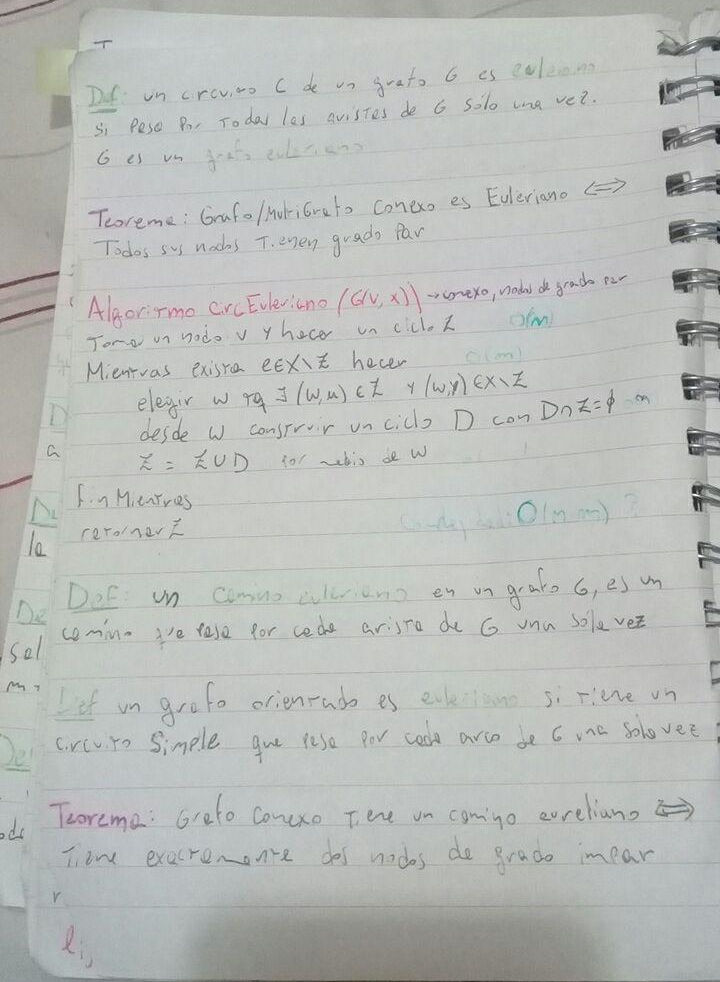 Def: un circuito C de un grafo G es euleriano
si pasa por todas las aristas de G sólo una vez.
G es un grafo euleriano
Teorema: Grafo/MultiGrafo conexo es Euleriano ⟺
Todos sus nodos tienen grado Par
Algoritmo CircEuleriano (G(V, X)) → conexo, nodos de grado par
Tomar un nodo v y hacer un ciclo Z O(m)
Mientras exista e∈X\Z hacer O(m)
elegir w tq ∃ (w,u) ∈ Z y (w,y) ∈ X\Z
desde w construir un ciclo D con D∩Z=ϕ m
Z = Z∪D por medio de w
Fin Mientras
retornar Z
O(m m) ?
Def: un camino euleriano en un grafo G, es un
camino que pasa por cada arista de G una sóla vez
Def un grafo orientado es euleriano si tiene un
circuito simple que pasa por cada arco de G una sola vez
Teorema: Grafo conexo tiene un camino eureliano ⟺
tiene exactamente dos nodos de grado impar
De
a
De
la
De
sel
De
r